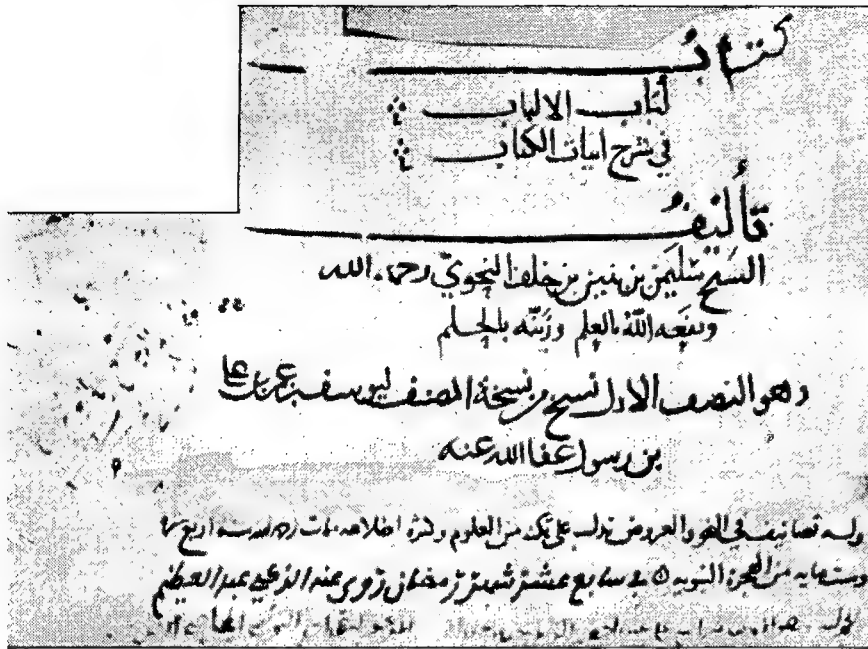 كتاب
لُبَاب الالباب
في شرح ابيات الكتاب
تأليفُ
الشيخ سليمن بن بنين بن خلف النحويّ رحمه الله
ونفعه الله بالعلم وزينه بالحلم
وهو النصف الاول نسخ من نسخة المصنف ليوسف بن عمر بن علي
بن رسول عفا الله عنه
وله تصانيف في النحو والعروض تدل على تمكنه من العلوم وكثرة اطلاعه مات رحمه الله سنة اربع
وستمايه من الهجرة النبويه في سابع عشر شهر رمضان روى عنه الزكي عبد العظيم